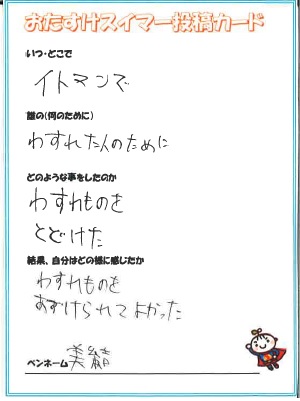 おたすけスイマー投稿カード
いつ・どこで
イトマンで
誰の(何のために)
わすれた人のために
どのような事をしたのか
わすれものを
とどけた
結果、自分はどの様に感じたか
わすれものを
あずけられてよかった
ペンネーム 美結